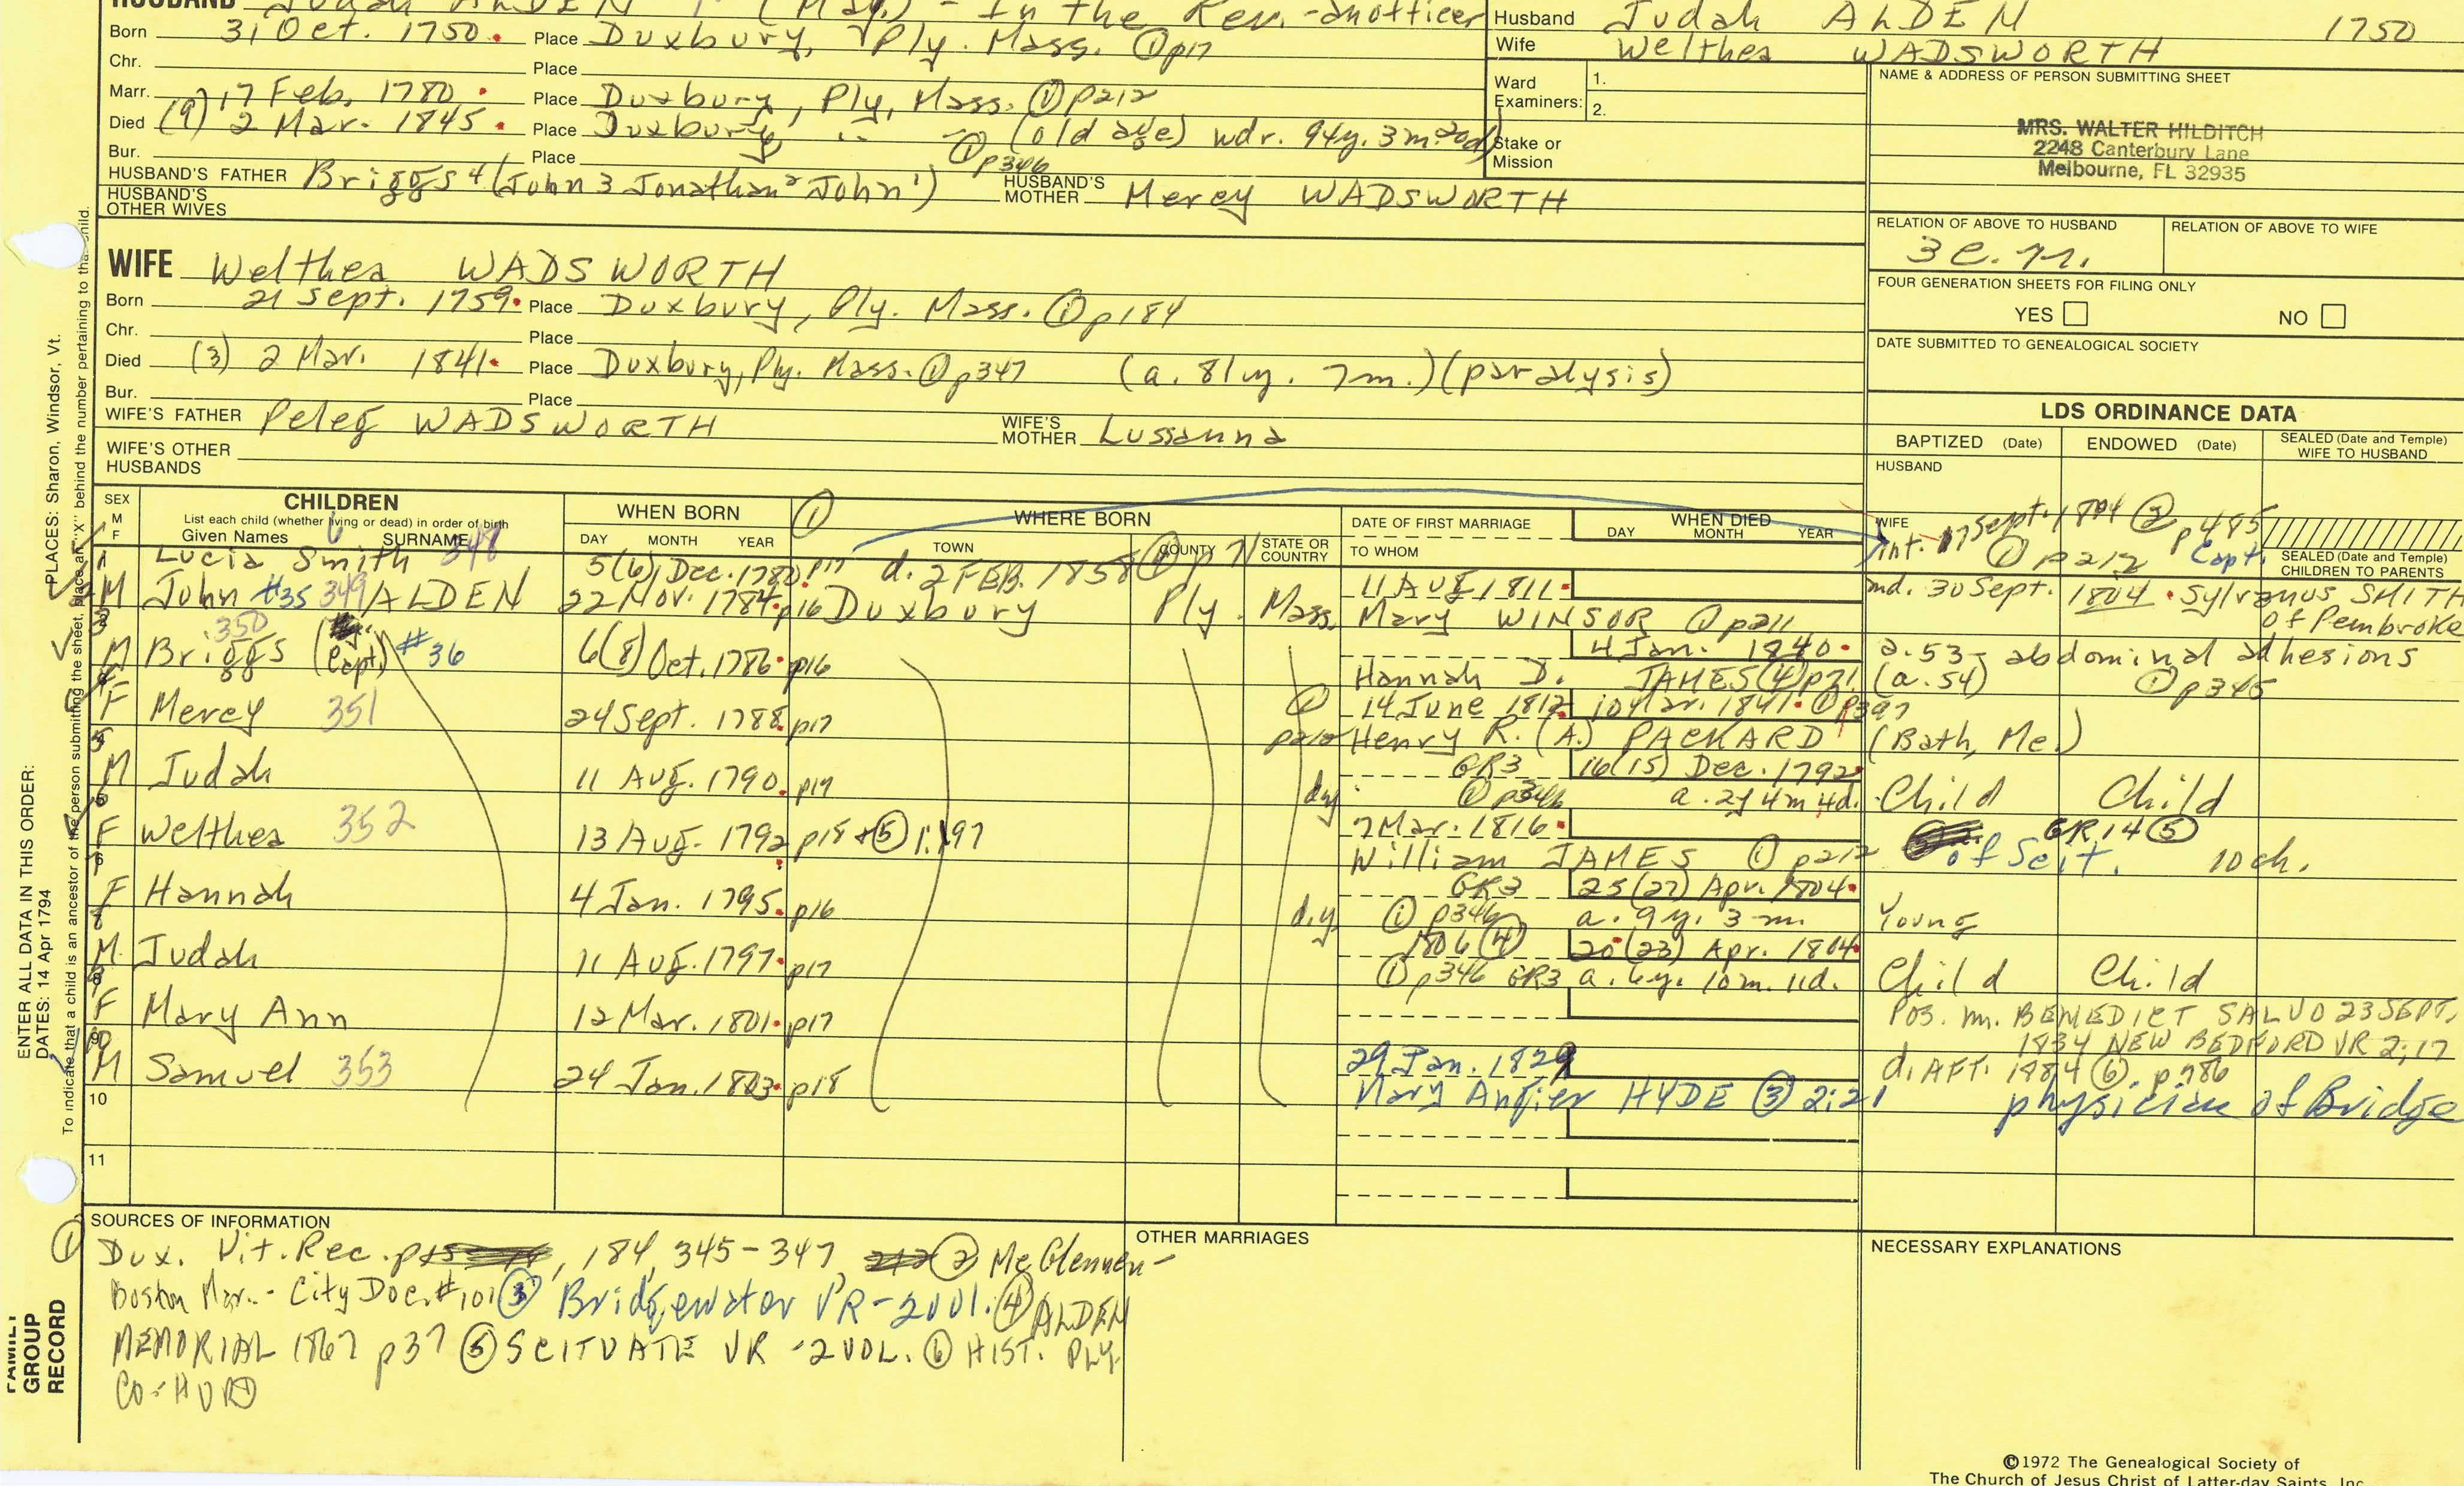 HUSBAND Judah ALDEN (Maj.) - In the Rev. - an officer
Born 31 Oct. 1750. Place Duxbury, Ply. Mass. ① p17
Chr. Place
Marr. 17 Feb. 1780. Place Duxbury, Ply, Mass. ① p212
Died (9) 2 Mar. 1845. Place Duxbury " " - (old age) wdr. 94y. 3m. 20d)
① p346
Bur. Place
HUSBAND'S FATHER Briggs 4 (John 3 Jonathan 2 John 1) HUSBAND'S MOTHER Mercy WADSWORTH
HUSBAND'S OTHER WIVES
Husband Judah ALDEN 1750
Wife Welthea WADSWORTH
Ward Examiners: 1.
2.
Stake or Mission
NAME & ADDRESS OF PERSON SUBMITTING SHEET
MRS. WALTER HILDITCH
2248 Canterbury Lane
Melbourne, FL 32935
RELATION OF ABOVE TO HUSBAND RELATION OF ABOVE TO WIFE
3 c.
FOUR GENERATION SHEETS FOR FILING ONLY
YES NO
DATE SUBMITTED TO GENEALOGICAL SOCIETY
WIFE Welthea WADSWORTH
Born 21 Sept. 1759. Place Duxbury, Ply. Mass. ① p184
Chr. Place
Died (3) 2 Mar. 1841. Place Duxbury, Ply. Mass. ① p347 (a. 81y. 7m.) (paralysis)
Bur. Place
WIFE'S FATHER Peleg WADSWORTH WIFE'S MOTHER Lusanna
WIFE'S OTHER HUSBANDS
LDS ORDINANCE DATA
BAPTIZED (Date) ENDOWED (Date) SEALED (Date and Temple) WIFE TO HUSBAND
HUSBAND
WIFE
SEALED (Date and Temple) CHILDREN TO PARENTS
SEX M F CHILDREN
List each child (whether living or dead) in order of birth
Given Names SURNAME
WHEN BORN DAY MONTH YEAR
① WHERE BORN TOWN COUNTY STATE OR COUNTRY
DATE OF FIRST MARRIAGE TO WHOM
WHEN DIED DAY MONTH YEAR
1 Lucia Smith 348 5(6) Dec. 1780. p17 d. 2 FEB. 1858 ④ p
int. 17 Sept. 1804 ③ p485
① p212 Capt.
md. 30 Sept. 1804. Sylvanus SMITH of Pembroke
2 M John #35 349 / ALDEN 22 Nov. 1784. p16 Duxbury Ply. Mass. 11 AUG 1811.
Mary WINSOR ① p211
3 M Briggs (Capt) #36 350 6(8) Oct. 1786. p16 4 Jan. 1840. a. 53 - abdominal adhesions
Hannah D. JAMES (4) (a. 54) ① p345
4 F Mercy 351 24 Sept. 1788. p17 ① 14 June 1812. 10 Mar. 1841. ① p397
p212 Henry R. (A.) PACKARD (Bath, Me.)
5 M Judah 11 Aug. 1790. p17 GR3 16(15) Dec. 1792.
dy. ① p346 a. 2y 4m 4d. Child Child
6 F Welthea 352 13 Aug. 1792 p18 + ⑤ 1:197 7 Mar. 1816. GR14 ⑤
William JAMES ① p212 of Scit. 10 ch.
F Hannah 4 Jan. 1795. p16 GR3 25(27) Apr. 1804.
d.y. ① p346 a. 9y. 3m. Young
8 M. Judah 11 Aug. 1797. p17 1806 (4) 20(23) Apr. 1804.
① p346 GR3 a. 6y. 10m. 11d. Child Child
F Mary Ann 12 Mar. 1801. p17
Pos. m. BENEDICT SALVO 23 SEPT.
1834 NEW BEDFORD VR 2:17
M Samuel 353 24 Jan. 1803. p18 29 Jan. 1829 d. AFT. 1884 ⑥. p.
10 Mary Angier HYDE ③ 2:21 physician of Bridge
11
SOURCES OF INFORMATION
① Dux. Vit. Rec. , 184, 345-347 ② McGlennen -
Boston Mar. - City Doc. #101 ③ Bridgewater VR - 2 vol. ④ ALDEN
MEMORIAL 1867 p37 ⑤ SCITUATE VR - 2 VOL. ⑥ HIST. PLY.
CO - HURD
OTHER MARRIAGES
NECESSARY EXPLANATIONS
ENTER ALL DATA IN THIS ORDER:
DATES: 14 Apr 1794
PLACES: Sharon, Windsor, Vt.
To indicate that a child is an ancestor of the person submitting the sheet, place an "X" behind the number pertaining to that child.
FAMILY GROUP RECORD
©1972 The Genealogical Society of
The Church of Jesus Christ of Latter-day Saints, Inc.